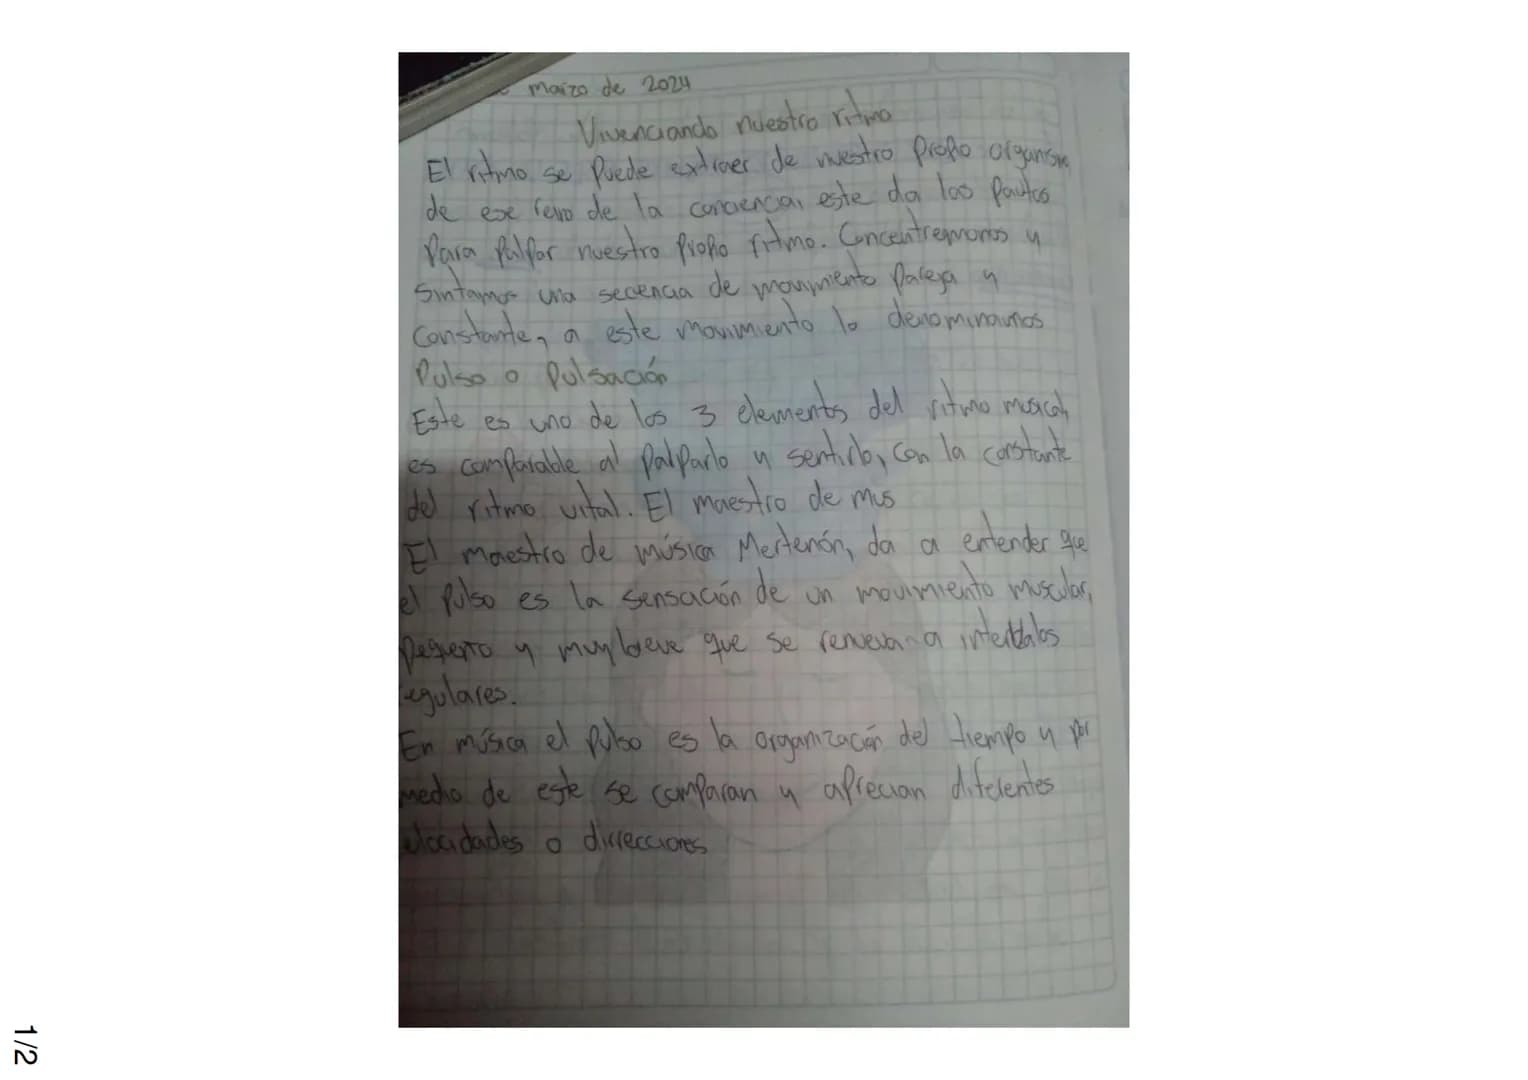 marzo de 2024
Vivenciando nuestro ritmo
El ritmo se Puede extraer de nuestro Propio organism
de ese de la conciencia, este da las Pautas
Para Palpar nuestro Propio ritmo. Concentremonos y
Sintamos una secencia de movimiento Pareja y
Constante, a este movimiento lo denominamos
Pulso o Pulsación
Este es uno de los 3 elementos del ritmo musical,
es comparable al Palparlo y sentirlo, con la constante
del ritmo vital. El maestro de mus
El maestro de música Mertenón, da a entender que
el Pulso es la sensación de un movimiento muscular,
Pequeño y muy breve que se renueva a intervalos
regulares.
En música el Pulso es la organización del tiempo y por
medio de este se comparan y aprecian diferentes
elocidades o dirrecciones
1/2